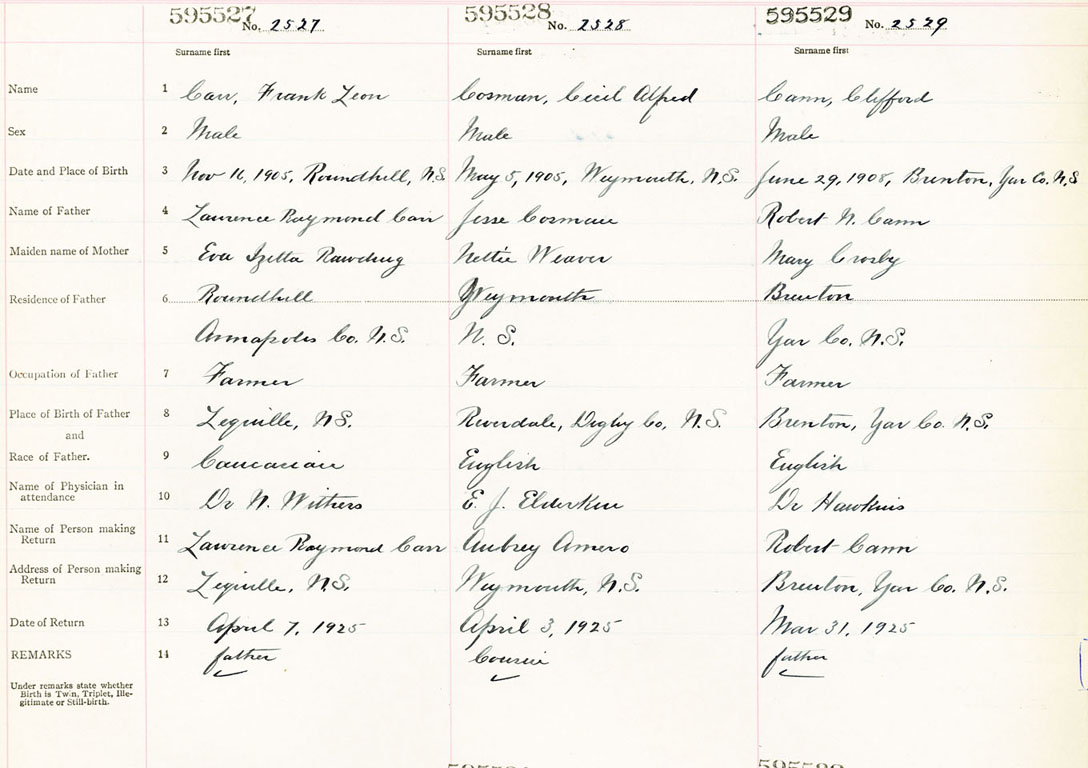 595527 No. 2527
595528 No. 2528
595529 No. 2529
Surname first Surname first Surname first
Name 1 Carr, Frank Leon Cosman, Cecil Alfred Cann, Clifford
Sex 2 Male Male Male
Date and Place of Birth 3 Nov 16, 1905, Roundhill, N.S. May 5, 1905, Weymouth, N.S. June 29, 1908, Brenton, Yar Co. N.S
Name of Father 4 Laurence Raymond Carr Jesse Cosman Robert N. Cann
Maiden name of Mother 5 Eva Izetta Rawding Nettie Weaver Mary Crosby
Residence of Father 6 Roundhill Weymouth Brenton
Annapolis Co. N.S. N. S. Yar Co. N.S.
Occupation of Father 7 Farmer Farmer Farmer
Place of Birth of Father 8 Lequille, N.S. Riverdale, Digby Co, N.S. Brenton, Yar Co. N.S.
and
Race of Father. 9 Caucasian English English
Name of Physician in
attendance 10 Dr N. Withers E. J. Elderkin Dr Hawkins
Name of Person making
Return 11 Lawrence Raymond Carr Aubrey Amero Robert Cann
Address of Person making
Return 12 Lequille, N.S. Weymouth, N.S. Brenton, Yar Co. N.S.
Date of Return 13 April 7, 1925 April 3, 1925 Mar 31, 1925
REMARKS 14 father Cousin father
Under remarks state whether
Birth is Twin, Triplet, Ille-
gitimate or Still-birth.